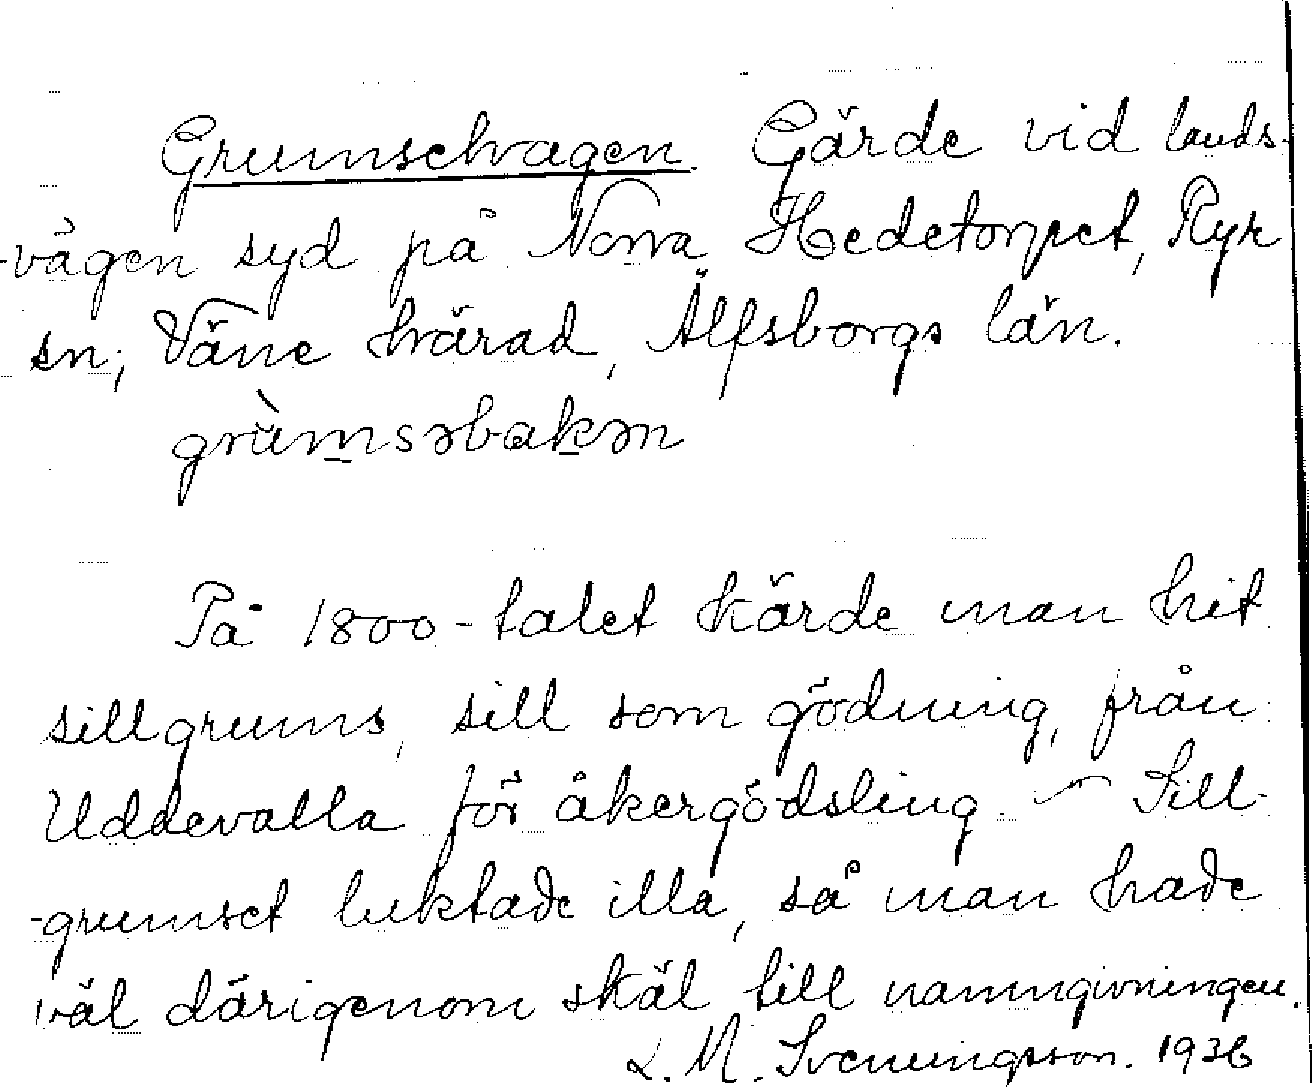 Grumsehagen. Gärde vid lands-
-vägen syd på Norra Hedetorpet, Ryr
sn; Väne härad, Älfsborgs län.
grùmsəbakən
På 1800-talet körde man hit
sillgrums, sill som gödning, från
Uddevalla för åkergödsling. — Sill-
-grumset luktade illa, så man hade
väl därigenom skäl till namngivningen.
L. M. Svenungsson. 1936